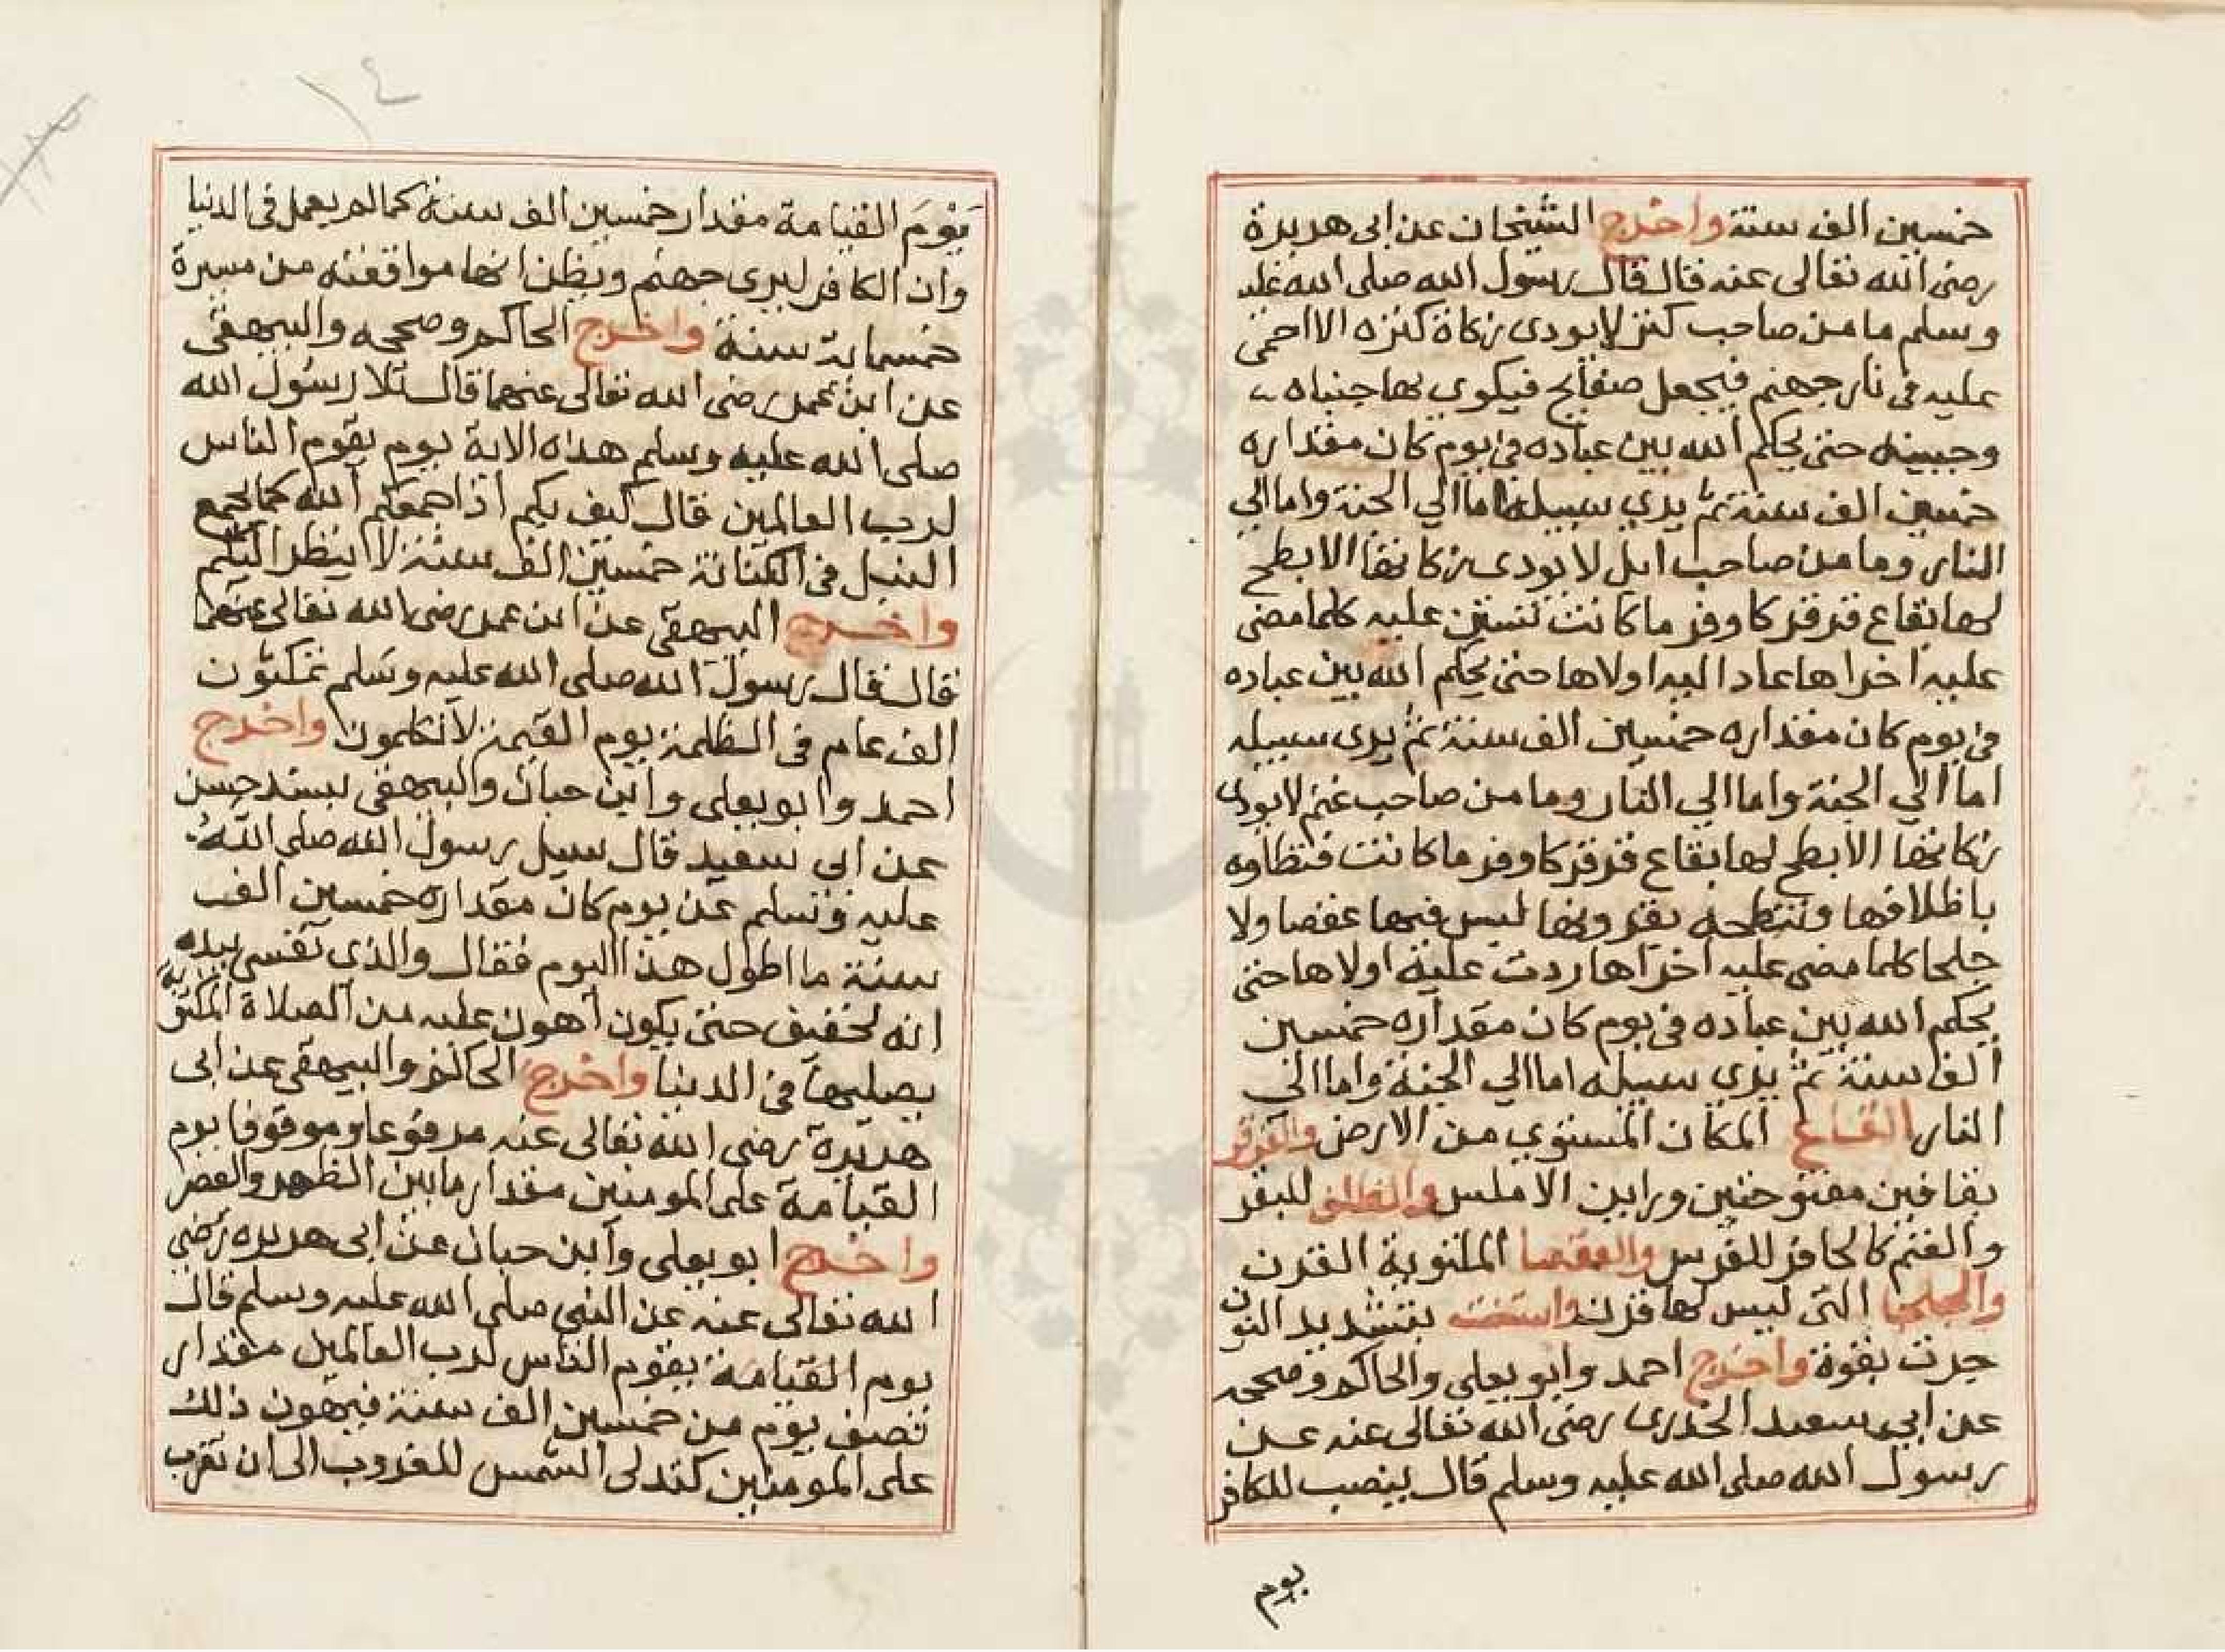 خمسين الف سنة واخرج الشيخان عن ابى هريرة
رضى الله تعالى عنه قال قال رسول الله صلى الله عليه
وسلم ما من صاحب كنز لا يودى زكاة كنزه الا احمى
عليه فى نار جهنم فيجعل صفايح فيكوى بها جنباه
وجبينه حتى يحكم الله بين عباده فى يوم كان مقداره
خمسين الف سنة ثم يرى سبيله اما الي الجنة واما الي
النار وما من صاحب ابل لا يودى زكاتها الا بطح
لها بقاع قرقر كاوفر ما كانت تستن عليه كلما مضى
عليه اخراها عاد اليه اولاها حتى يحكم الله بين عباده
فى يوم كان مقداره خمسين الف سنة ثم يرى سبيله
اما الي الجنة واما الي النار وما من صاحب غنم لا يودى
زكاتها الا بطح لها بقاع قرقر كاوفر ما كانت فتطاوه
باظلافها وتنطحه بقرونها ليس فيها عقصا ولا
جلحا كلما مضى عليه اخراها ردت عليه اولاها حتى
يحكم الله بين عباده فى يوم كان مقداره خمسين
الف سنة ثم يرى سبيله اما الي الجنة واما الي
النار القاع المكان المستوي من الارض والقرقر
بقافين مفتوحتين وراين الاملس والظلف للبقر
والغنم كالحافر للفرس والعقصا الملتوية القرن
والجلحا التى ليس لها قرن واستنت بتشديد النون
جرت بقوة واخرج احمد وابو يعلى والحاكم وصححه
عن ابي سعيد الخدرى رضى الله تعالى عنه عن
رسول الله صلى الله عليه وسلم قال ينصب للكافر
يوم
١٤
يَوْمَ القيامة مقدار خمسين الف سنة كما لم يعمل فى الدنيا
وان الكافر ليرى جهنم ويظن انها مواقعته من مسيرة
خمسماية سنة واخرج الحاكم وصححه والبيهقى
عن ابن عمر رضى الله تعالى عنهما قال تلا رسول الله
صلى الله عليه وسلم هذه الاية يوم يقوم الناس
لرب العالمين قال كيف بكم اذا جمعكم الله كما يجمع
النبل فى الكنانة خمسين الف سنة لا ينظر اليكم
واخرج البيهقى عن ابن عمر رضى الله تعالى عنهما
قال قال رسول الله صلى الله عليه وسلم تمكثون
الف عام فى الظلمة يوم القيمة لا تكلمون واخرج
احمد وابو يعلى وابن حبان والبيهقى بسند حسن
عن ابى سعيد قال سيل رسول الله صلى الله
عليه وسلم عن يوم كان مقداره خمسين الف
سنة ما اطول هذا اليوم فقال والذى نفسى بيده
انه ليخفيف حتى يكون اهون عليه من الصلاة المكتوبة
يصليها فى الدنيا واخرج الحاكم والبيهقى عن ابى
هريرة رضى الله تعالى عنه مرفوعا وموقوفا يوم
القيامة على المومنين مقدار ما بين الظهر والعصر
واخرج ابو يعلى وابن حبان عن ابى هريره رضى
الله تعالى عنه عن النبى صلى الله عليه وسلم قال
يوم القيامة يقوم الناس لرب العالمين مقدار
نصف يوم من خمسين الف سنة فيهون ذلك
على المومنين كتدلى الشمس للغروب الى ان تغرب